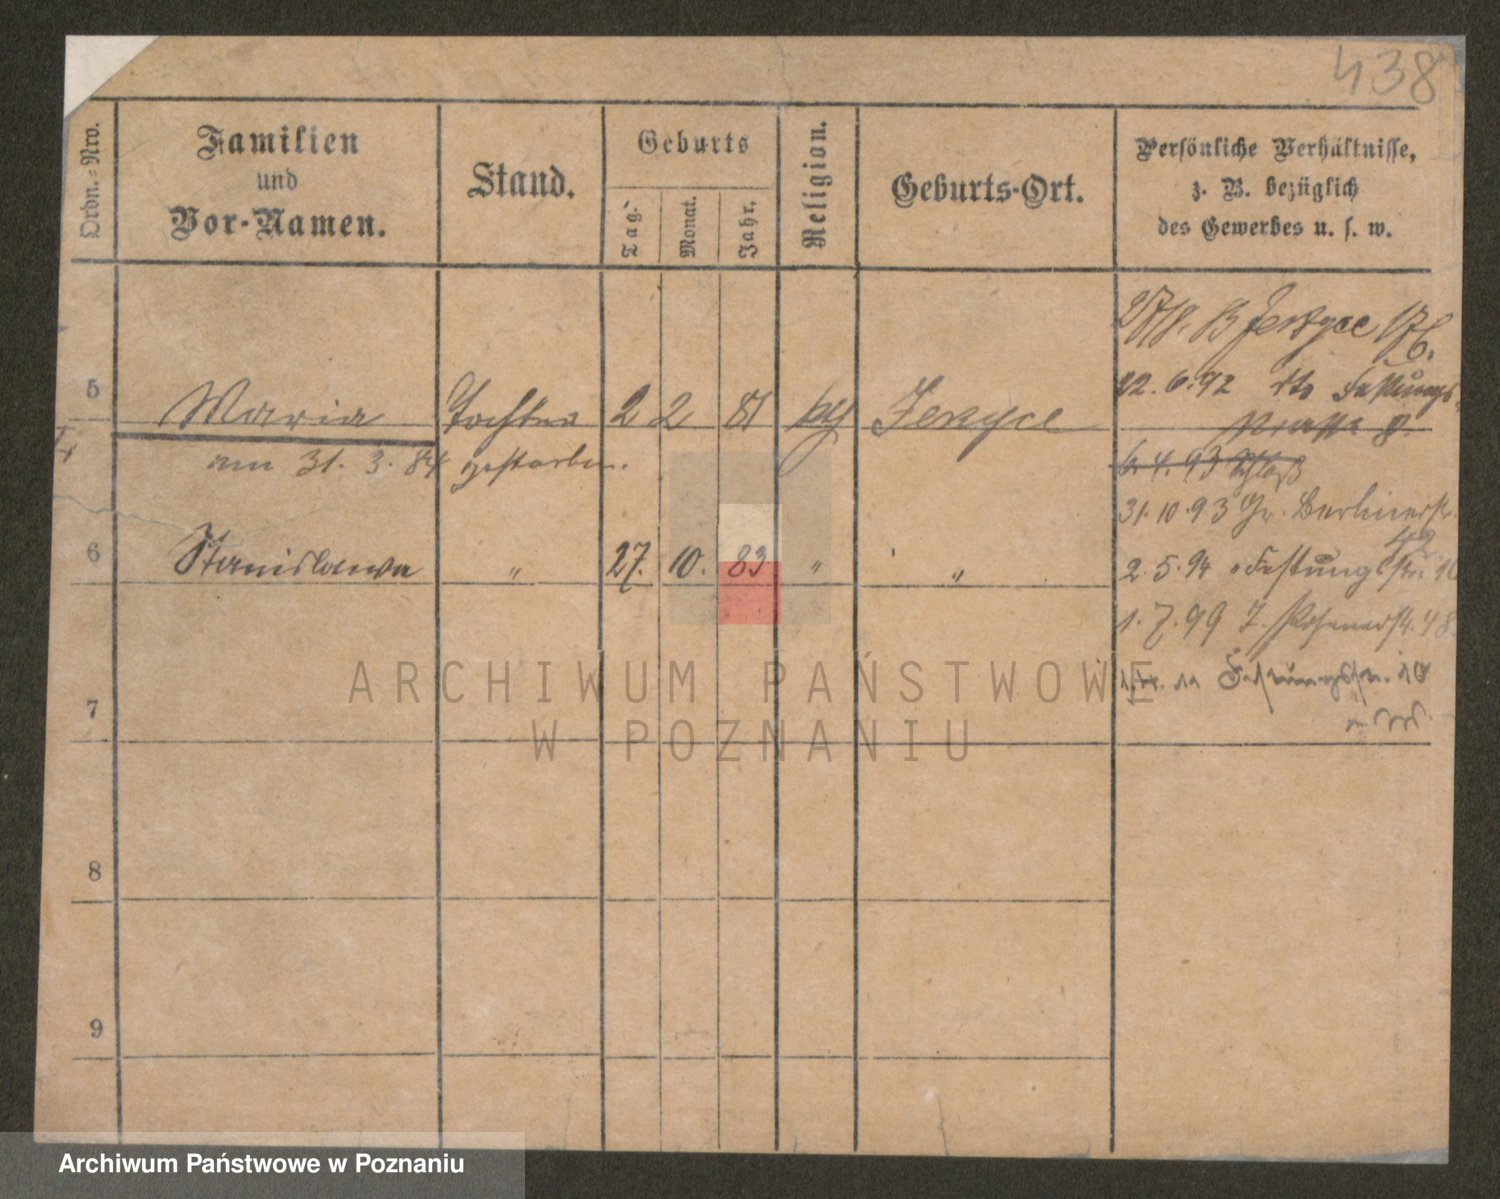 438
Ordn.-Nro.
Familien
und
Vor-Namen.
Stand.
Geburts
Tag.
Monat.
Jahr.
Religion.
Geburts-Ort.
Persönliche Verhältnisse,
z. B. bezüglich
des Gewerbes u. s. w.
Jerzyce 176.
5 Maria Tochter 2 2 81 Jerzyce
22.6.92 Festungs-
straße 8.
am 31. 3. 84 gestorben.
6.4.93 Schloß
31.10.93 Gr. Berlinerstr.
42
6 Stanislawa " 27. 10. 83 " "
2.5.94 Festungsstr. 10
1.7.99 Posenerstr. 48
Festungsstr. 10
7
8
9
ARCHIWUM PAŃSTWOWE
W POZNANIU
Archiwum Państwowe w Poznaniu